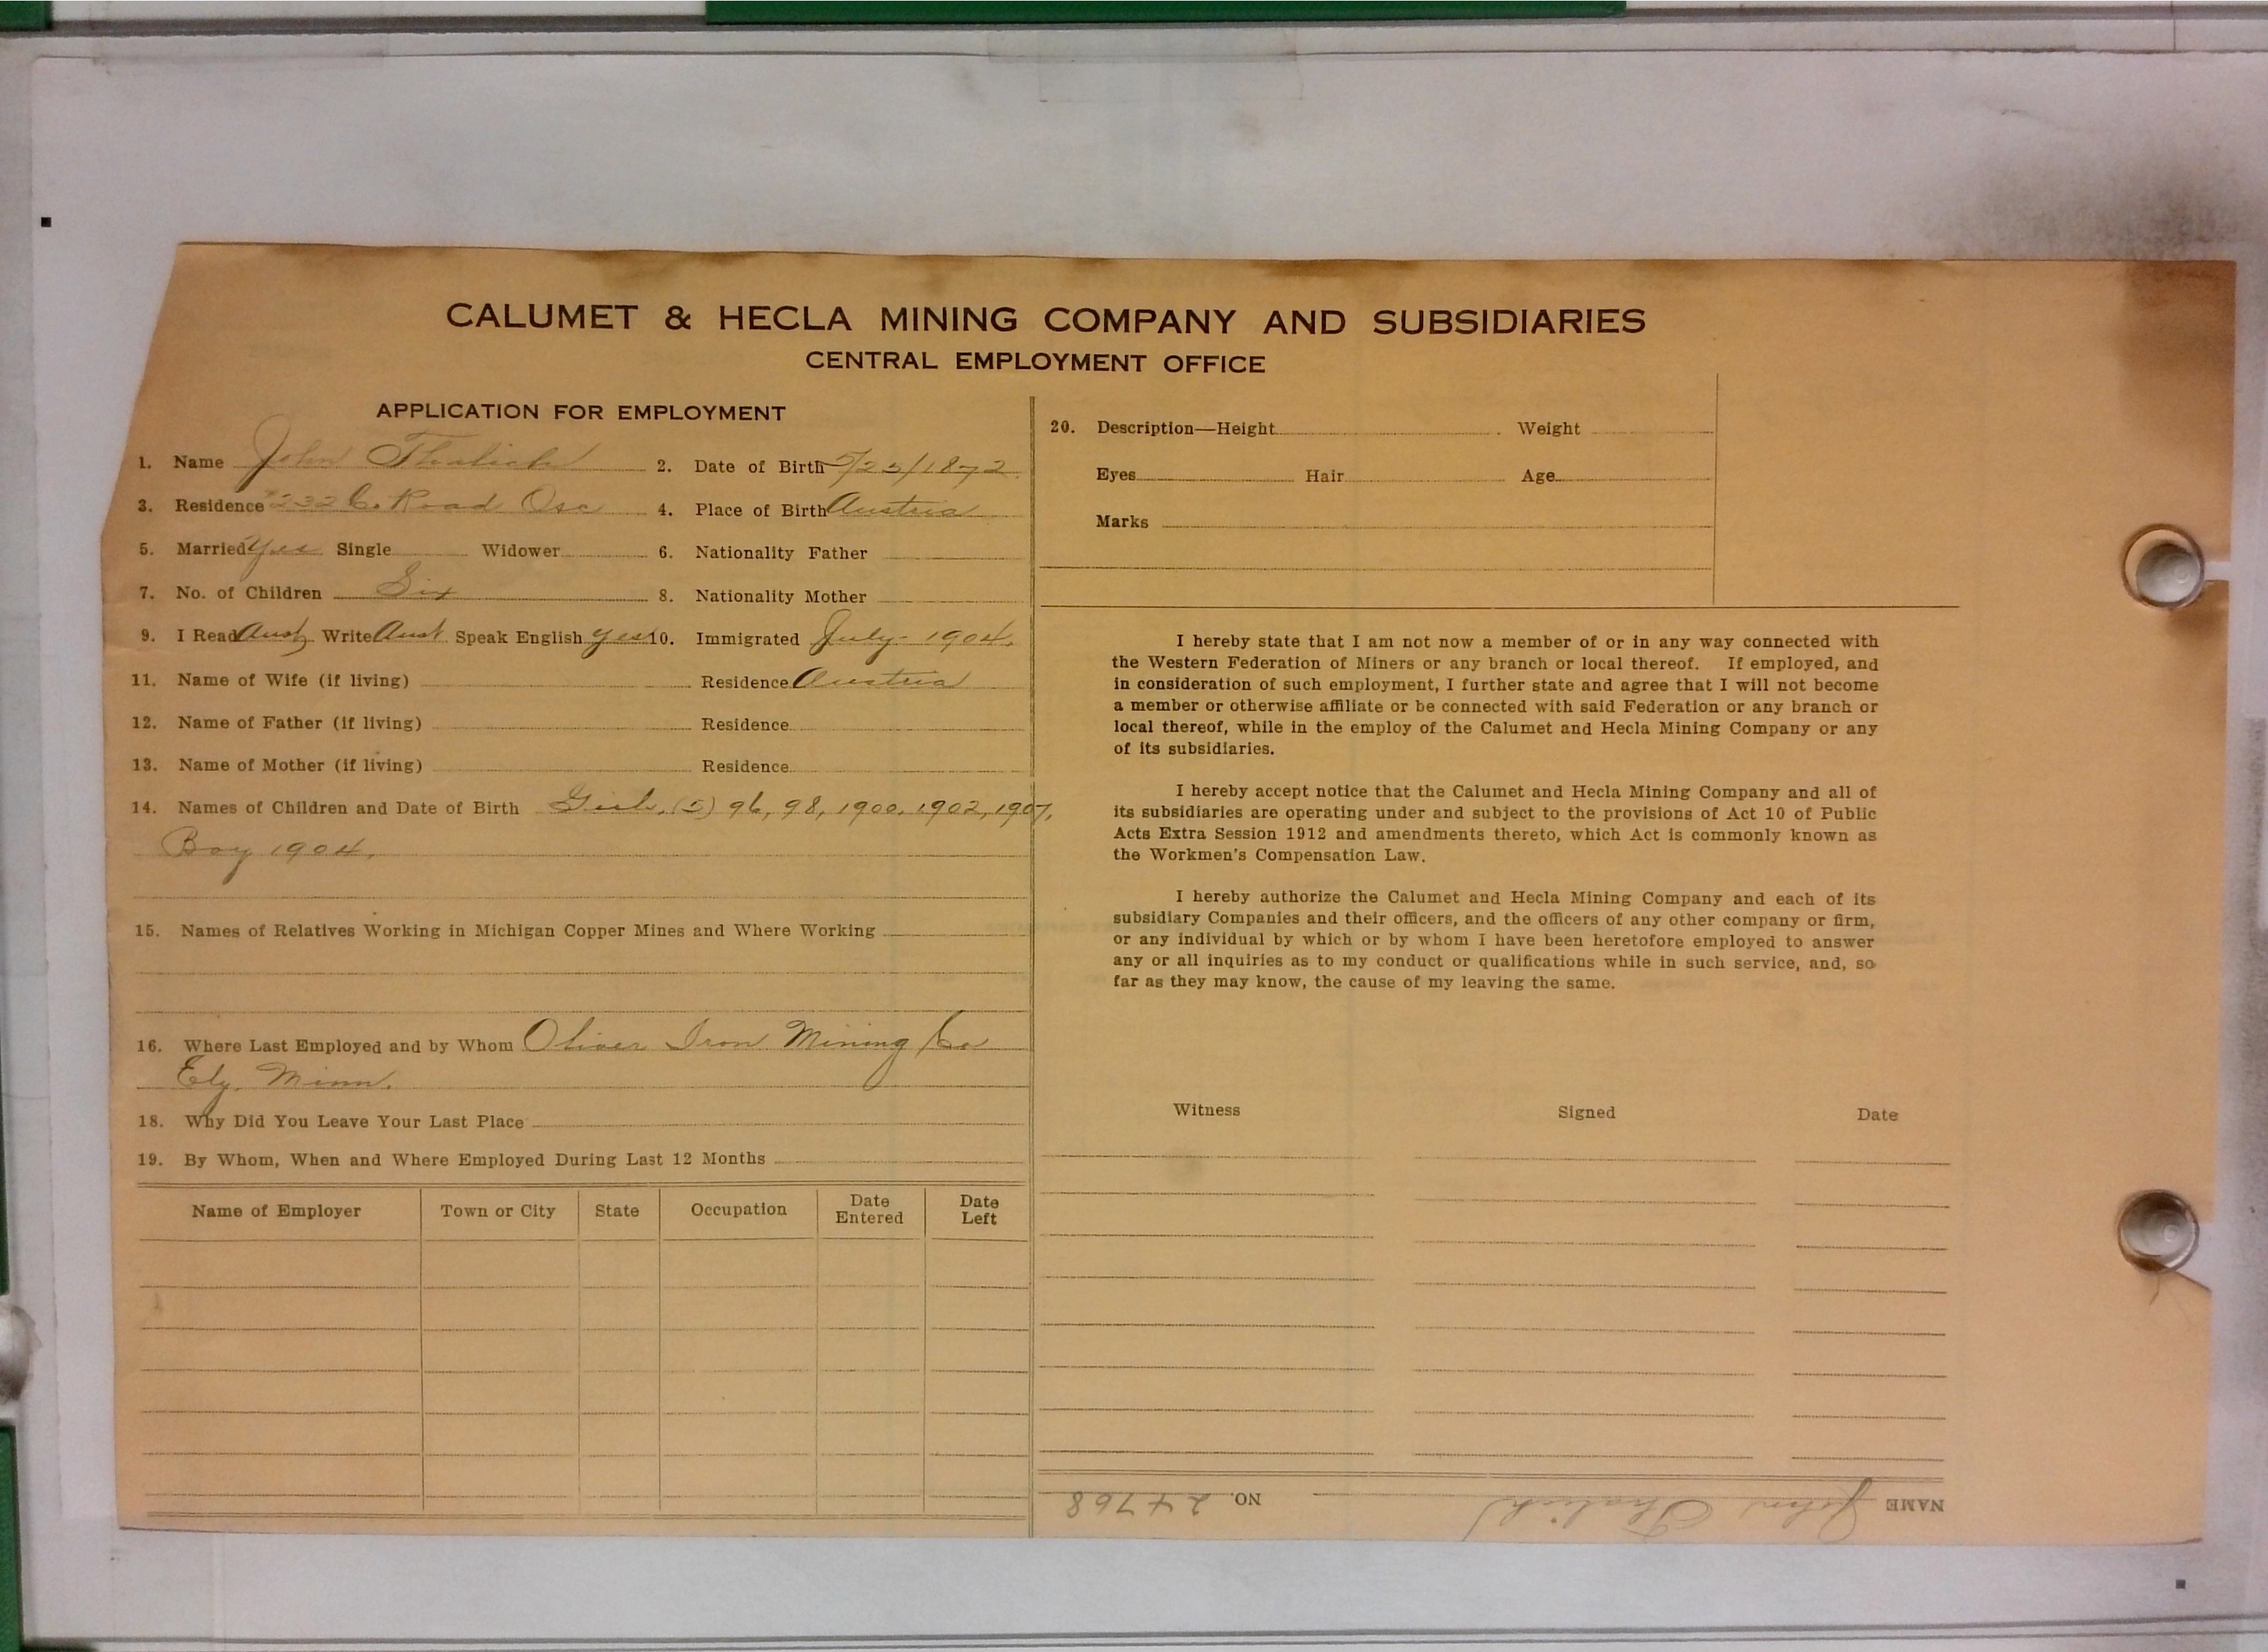 CALUMET & HECLA MINING COMPANY AND SUBSIDIARIES
CENTRAL EMPLOYMENT OFFICE
APPLICATION FOR EMPLOYMENT
1. Name John 2. Date of Birth 5/25/1872
3. Residence #232 C. Road Osc 4. Place of Birth Austria
5. Married Yes Single Widower 6. Nationality Father
7. No. of Children Six 8. Nationality Mother
9. I Read Aust Write Aust Speak English Yes 10. Immigrated July - 1904.
11. Name of Wife (if living) Residence Austria
12. Name of Father (if living) Residence
13. Name of Mother (if living) Residence
14. Names of Children and Date of Birth Girls, (5) 96, 98, 1900, 1902, 1907,
Boy 1904.
15. Names of Relatives Working in Michigan Copper Mines and Where Working
16. Where Last Employed and by Whom Oliver Iron Mining Co
Ely, Minn.
18. Why Did You Leave Your Last Place
19. By Whom, When and Where Employed During Last 12 Months
Name of Employer Town or City State Occupation Date Entered Date Left
20. Description—Height Weight
Eyes Hair Age
Marks
I hereby state that I am not now a member of or in any way connected with
the Western Federation of Miners or any branch or local thereof. If employed, and
in consideration of such employment, I further state and agree that I will not become
a member or otherwise affiliate or be connected with said Federation or any branch or
local thereof, while in the employ of the Calumet and Hecla Mining Company or any
of its subsidiaries.
I hereby accept notice that the Calumet and Hecla Mining Company and all of
its subsidiaries are operating under and subject to the provisions of Act 10 of Public
Acts Extra Session 1912 and amendments thereto, which Act is commonly known as
the Workmen's Compensation Law.
I hereby authorize the Calumet and Hecla Mining Company and each of its
subsidiary Companies and their officers, and the officers of any other company or firm,
or any individual by which or by whom I have been heretofore employed to answer
any or all inquiries as to my conduct or qualifications while in such service, and, so
far as they may know, the cause of my leaving the same.
Witness Signed Date
NAME John NO. 24768